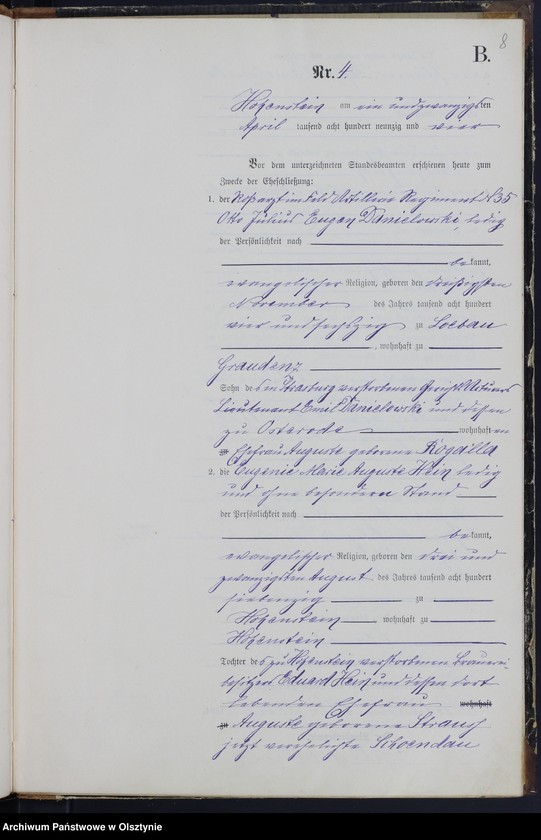 B.
8
Nr. 4.
Hohenstein am ein und zwanzigsten
April tausend acht hundert neunzig und vier
Vor dem unterzeichneten Standesbeamten erschienen heute zum
Zwecke der Eheschließung:
1. der Roßarzt im Feld Artillerie Regiment No 35
Otto Julius Eugen Danielowski, ledig
der Persönlichkeit nach
bekannt,
evangelischer Religion, geboren den dreißigsten
November des Jahres tausend acht hundert
vier und sechszig zu Loebau
, wohnhaft zu
Graudenz
Sohn des in Strasburg verstorbenen
Lieutenant Emil Danielowski und dessen
zu Osterode wohnhaften
Ehefrau Auguste geborene Rogalla
2. die Eugenie Marie Auguste Hein ledig
und ohne besondern Stand
der Persönlichkeit nach
bekannt,
evangelischer Religion, geboren den drei und
zwanzigsten August des Jahres tausend acht hundert
siebenzig zu
Hohenstein, wohnhaft zu
Hohenstein
Tochter des zu Hohenstein verstorbenen Brauerei-
besitzers Eduard Hein und dessen dort
lebenden Ehefrau wohnhaft
zu Auguste geborene Strauss
jetzt verehelichte Schoendau
Archiwum Państwowe w Olsztynie